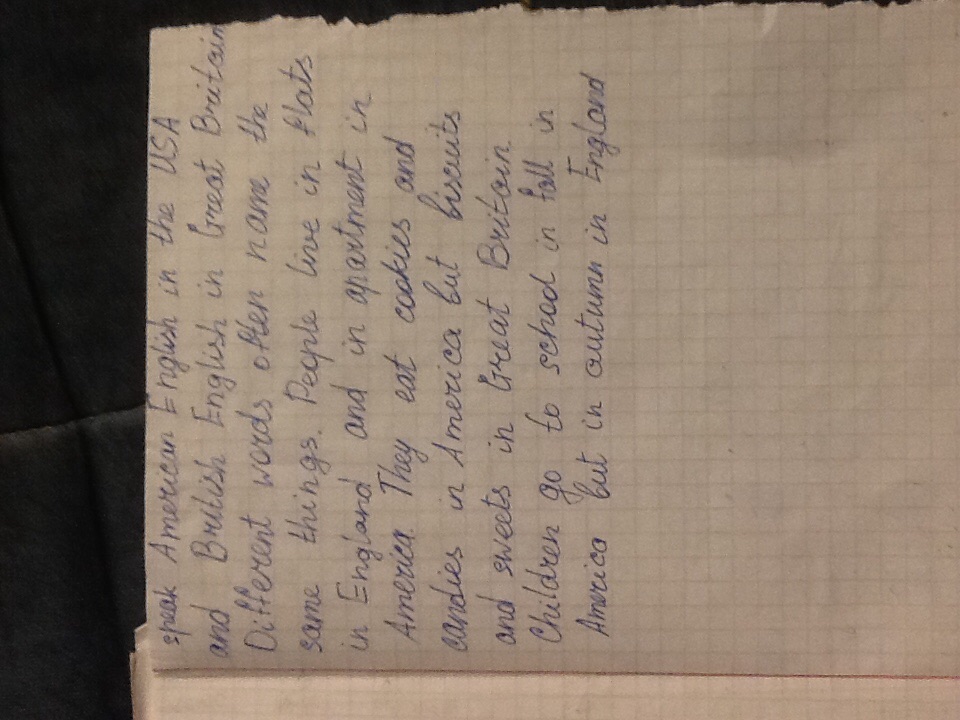 speak American English in the USA
and British English in Great Britain
Different words often name the
same things. People live in flats
in England and in apartment in
America. They eat cookies and
candies in America but biscuits
and sweets in Great Britain.
Children go to school in fall in
America but in autumn in England